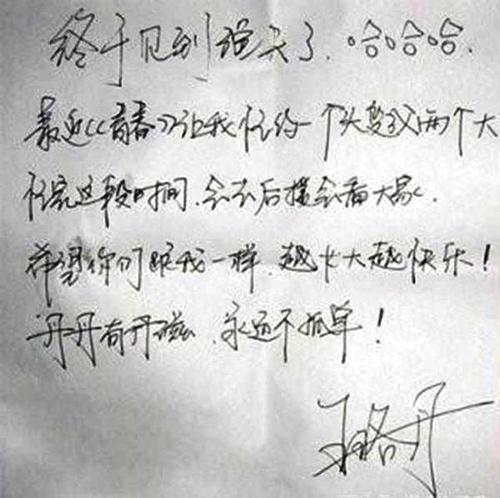 终于见到晴天了。哈哈哈哈。
最近《青春》让我忙的一个头变成两个大
忙完这段时间,会去后援会看大家。
希望你们跟我一样,越长大越快乐!
丹丹有丹磁,永远不孤单!
王珞丹